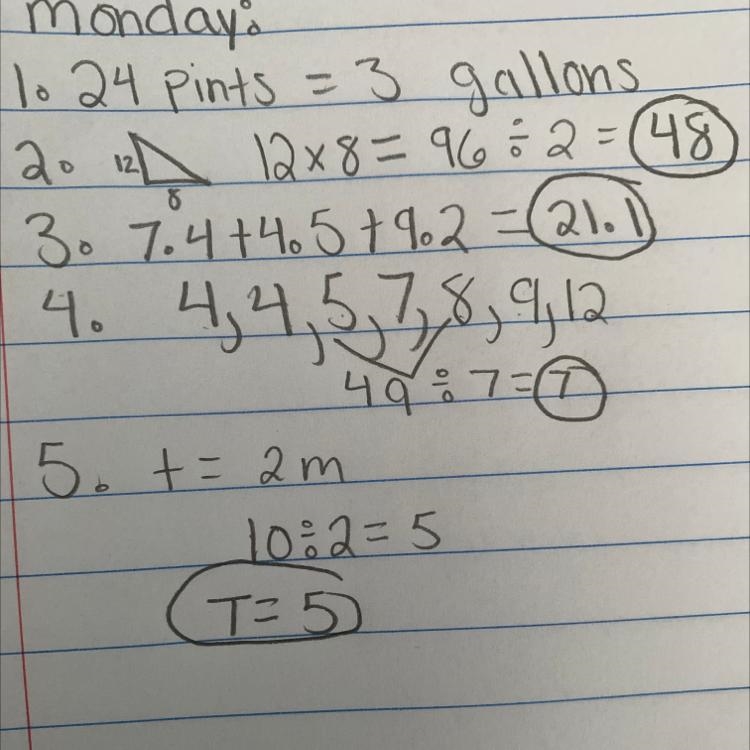 Monday:
1. 24 pints = 3 gallons
2. 12 8 12 x 8 = 96 ÷ 2 = 48
3. 7.4 + 4.5 + 9.2 = 21.1
4. 4, 4, 5, 7, 8, 9, 12
49 ÷ 7 = 7
5. t = 2m
10 ÷ 2 = 5
T = 5